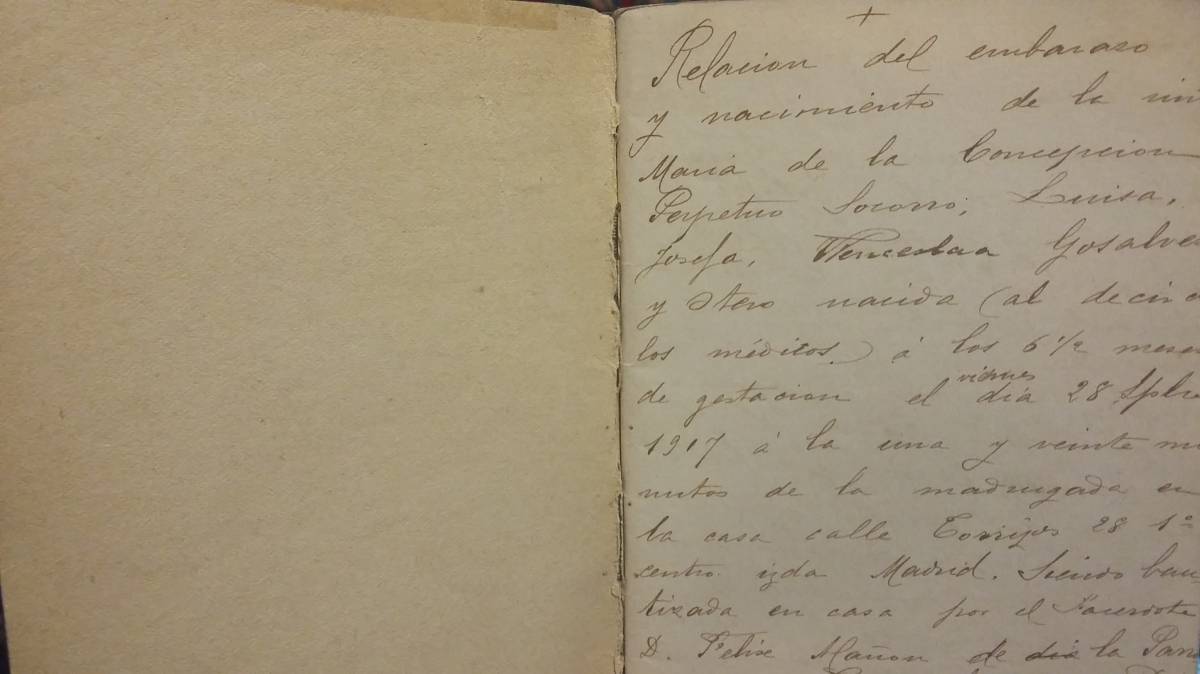 +
Relacion del embaraso
y nacimiento de la niñ
Maria de la Concepcion
Perpetuo Socorro, Luisa,
Josefa, Wenceslaa Gosalve
y Otero nacida (al decir d
los médicos) á los 6 1/2 mese
de gestacion el viernes dia 28 Spbre
1917 á la una y veinte mi
nutos de la madrugada en
la casa calle Torrijos 28 1º
centro izda Madrid. Siendo bau
tizada en casa por el Sacerdote
D. Felix Mañon de la Parr